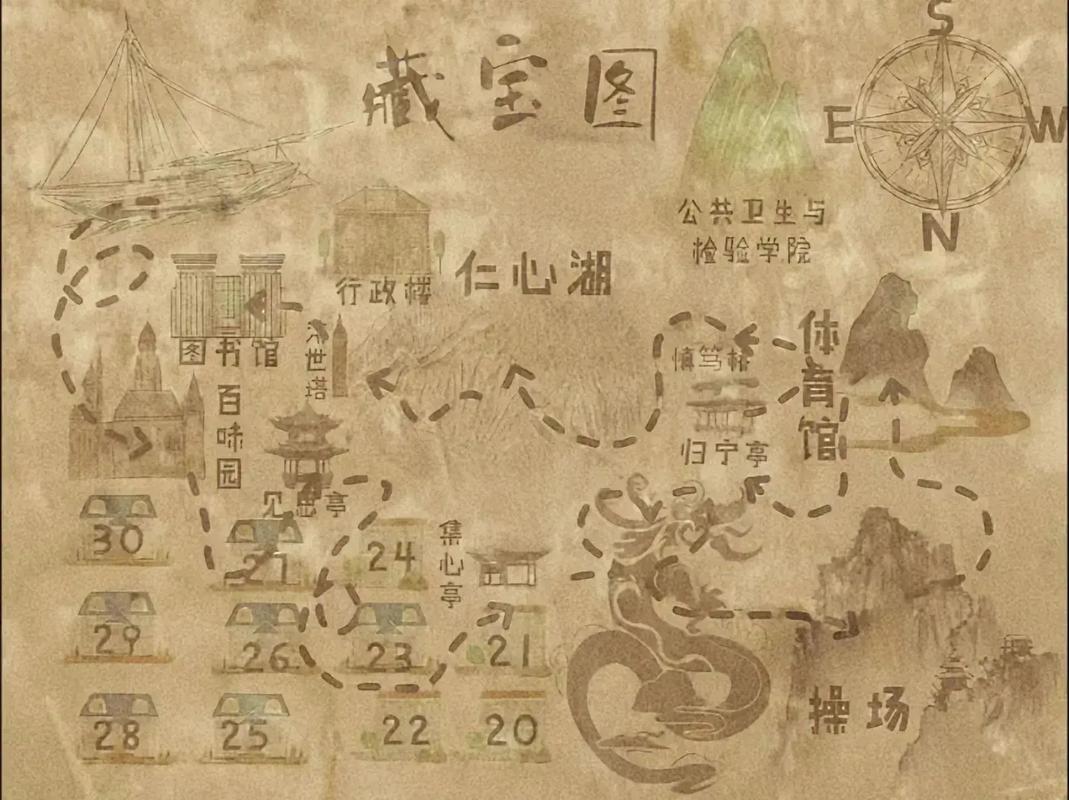 藏宝图
S
E
W
N
公共卫生与
检验学院
行政楼
仁心湖
图书馆
济世塔
百味园
慎笃桥
归宁亭
体育馆
见思亭
集心亭
30
27
24
29
26
23
21
28
25
22
20
操场